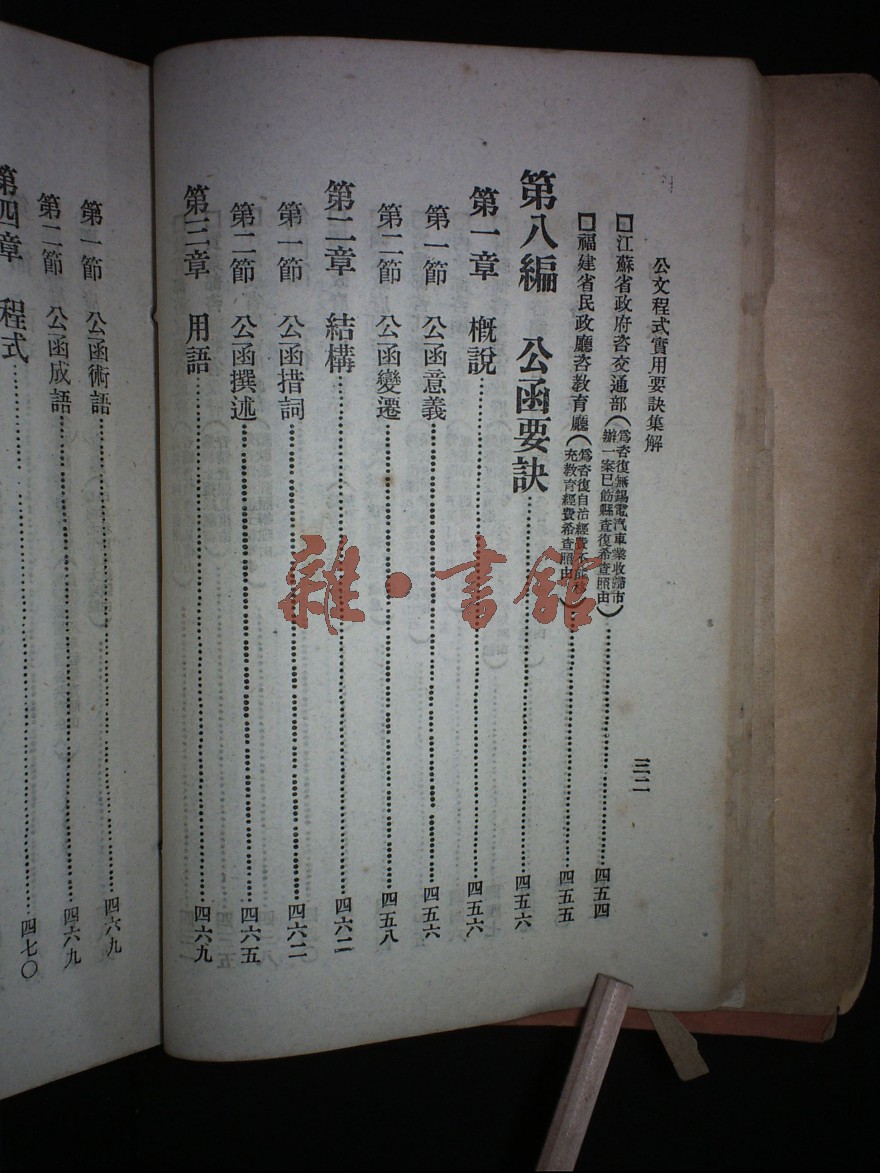 公文程式實用要訣集解
三二
□江蘇省政府咨交通部(爲咨復無錫電汽車業收歸市辦一案已飭縣查復希查照由)……四五四
□福建省民政廳咨教育廳(爲咨復自治經費不能移充教育經費希查照由)……四五五
第八編 公函要訣……四五六
第一章 概說……四五六
第一節 公函意義……四五六
第二節 公函變遷……四五八
第二章 結構……四六二
第一節 公函措詞……四六二
第二節 公函撰述……四六五
第三章 用語……四六九
第一節 公函術語……四六九
第二節 公函成語……四六九
第四章 程式……四七〇
雜·書館